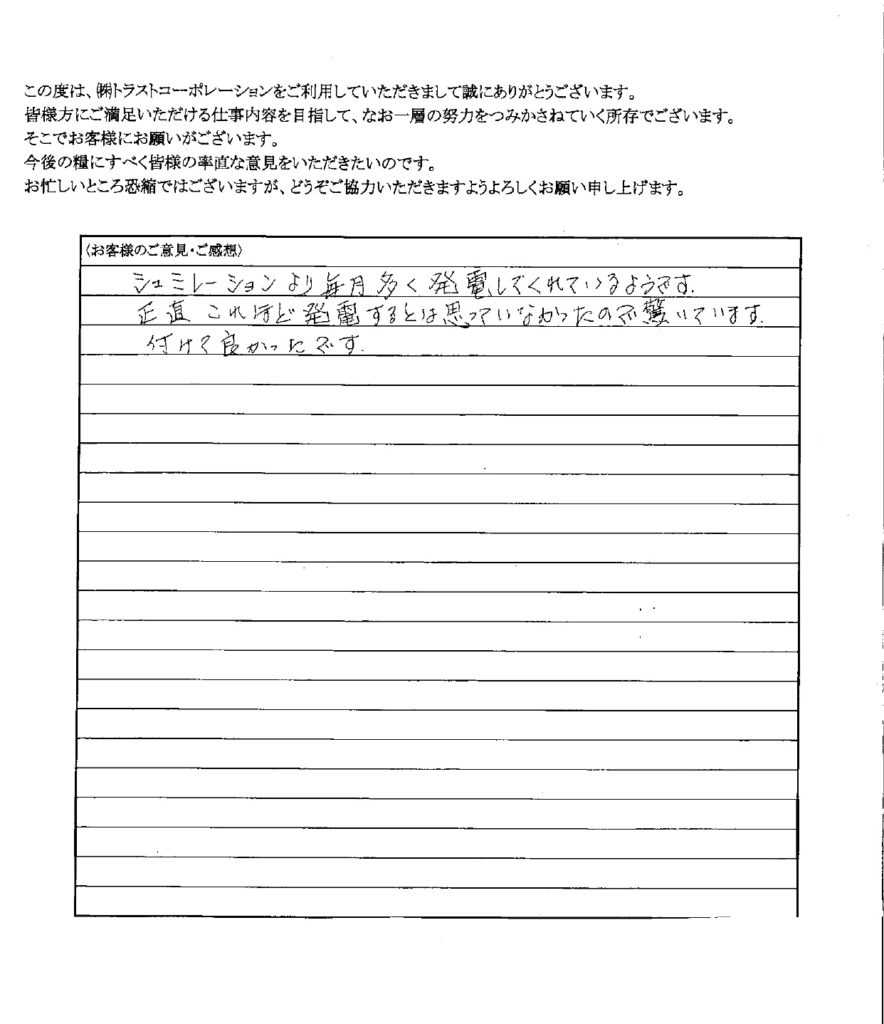 この度は、㈱トラストコーポレーションをご利用していただきまして誠にありがとうございます。
皆様方にご満足いただける仕事内容を目指して、なお一層の努力をつみかさねていく所存でございます。
そこでお客様にお願いがございます。
今後の糧にすべく皆様の率直な意見をいただきたいのです。
お忙しいところ恐縮ではございますが、どうぞご協力いただきますようよろしくお願い申し上げます。
〈お客様のご意見・ご感想〉
シュミレーションより毎月多く発電してくれているようです.
正直 これほど発電するとは思っていなかったので驚いています.
付けて良かったです.